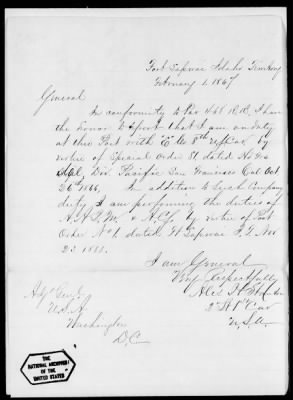 Fort Lapwai Idaho Territory
February 1. 1867
General
In conformity to Par 468 R.R. I have
the honor to report that I am on duty
at this Post with Co. "E" 8th US Cav. by
virtue of Special Order dated No
Div. Pacific San Francisco Cal Oct
26th 1866, In addition to Company
duty I am performing the duties of
A.A.Q.M. & A.C.S. by virtue of Post
Order No 1. dated Ft Lapwai I.T. Nov
23 1866.
I am General
Very Respectfully
2nd Lt 8th Cav
U.S.A.
Adjt Genl.
U.S.A.
Washington
D.C.
THE
NATIONAL ARCHIVES
OF
THE UNITED STATES